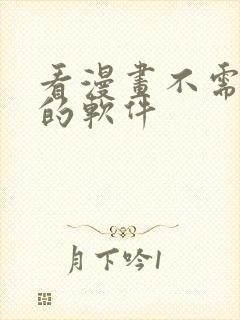 看漫畫不需
的軟件
月下吟1